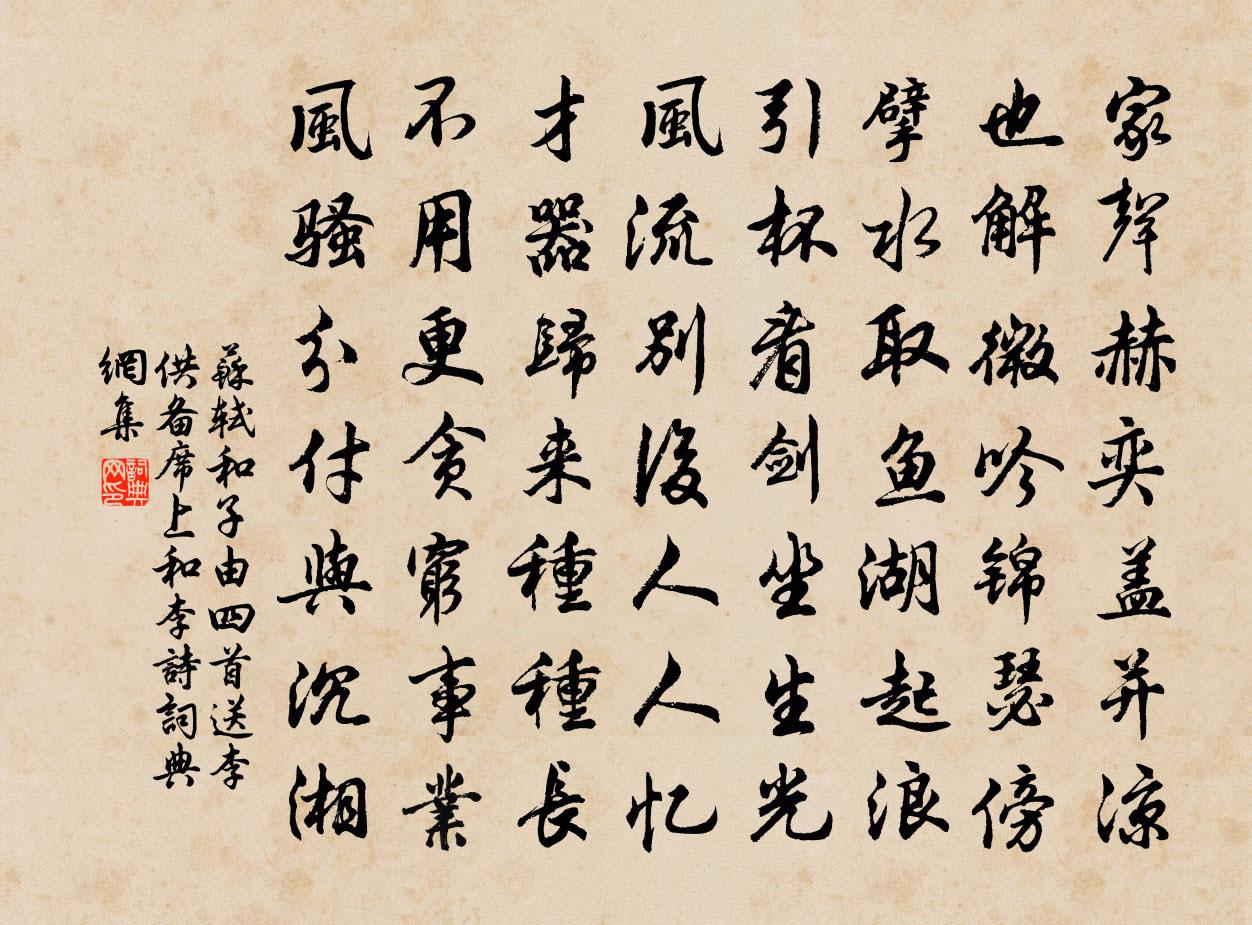 家聲赫奕盖并凉
也解微吟锦瑟傍
擘水取鱼湖起浪
引杯看剑坐生光
風流别後人人忆
才器歸来種種長
不用更贪窮事業
風骚分付與沉湘
蘇轼和子由四首送李
供备席上和李詩詞典
網集
詞典网印